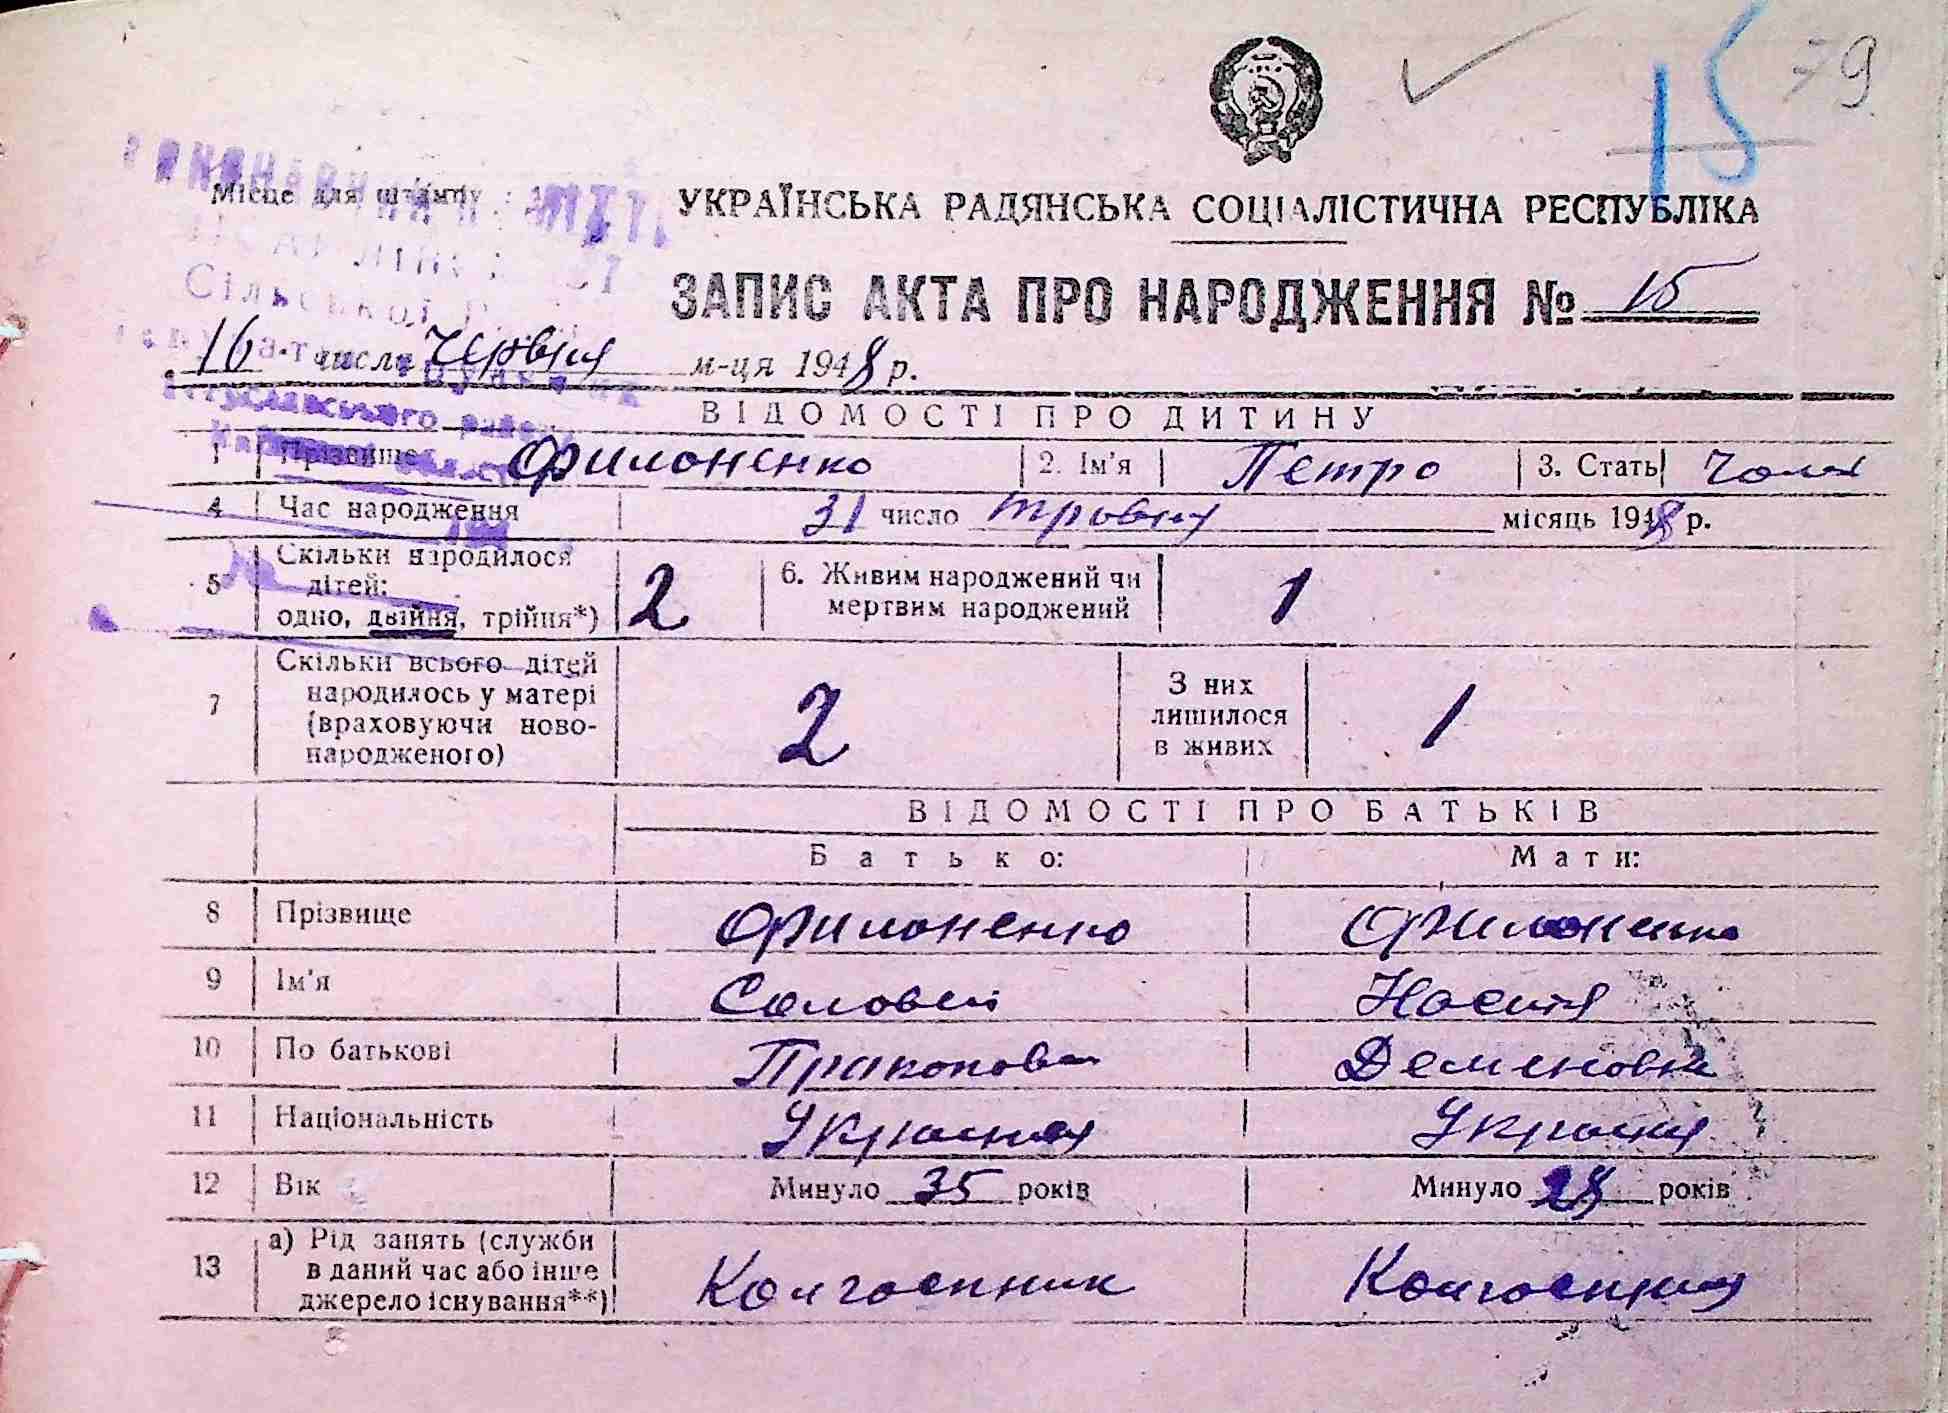 15 79
Місце для штампу
УКРАЇНСЬКА РАДЯНСЬКА СОЦІАЛІСТИЧНА РЕСПУБЛІКА
ЗАПИС АКТА ПРО НАРОДЖЕННЯ № 15
Сільської
16 числа Червня м-ця 1948 р.
Богуславського району
ВІДОМОСТІ ПРО ДИТИНУ
1 Прізвище Филоненко 2. Ім'я Петро 3. Стать Чолов
4 Час народження 31 число травня місяць 1948 р.
5 Скільки народилося
дітей:
одно, двійня, трійня*) 2 6. Живим народжений чи
мертвим народжений 1
7 Скільки всього дітей
народилось у матері
(враховуючи ново-
народженого) 2 З них
лишилося
в живих 1
ВІДОМОСТІ ПРО БАТЬКІВ
Батько: Мати:
8 Прізвище Филоненко Филоненко
9 Ім'я Соловей Настя
10 По батькові Прокопов Деменовна
11 Національність
12 Вік Минуло 35 років Минуло 28 років
13 а) Рід занять (служби
в даний час або інше
джерело існування**) Колгоспник Колгоспниця